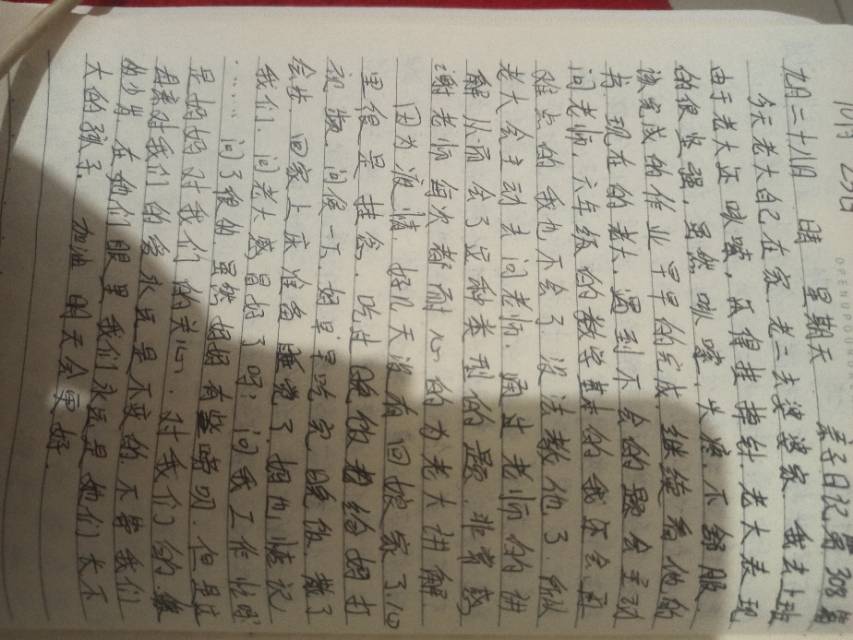 10月 23日
OPENUPYOUR
亲子日记第308篇
九月二十八日 晴 星期天
今天老大自己在家,老二去婆婆家,我去上班
由于老大还咳嗽,还得挂掉针,老大表现
的很坚强,虽然咳嗽,头疼,不舒服
该完成的作业早早的完成,继续看他的
书,现在的老大,遇到不会的题会主动
问老师,六年级的数学基本的我还会,再
难点的我也不会了,没法教他了,所以
老大会主动去问老师,通过老师的讲
解,从而会了这种类型的题,非常感
谢老师每次都耐心的为老大讲解
因为疫情,好几天没有回娘家了,心
里很是挂念,吃过晚饭都给妈打
视频,问候一下,妈是早吃完晚饭,散了
会步,回家上床准备睡觉了,担心、惦记
我们,问老大感冒好了吗;问我工作忙吗
……问了很多,虽然妈妈有些唠叨,但是这
是妈妈对我们的关心,对我们的爱
母亲对我们的爱永远是不变的,不管我们
多少岁,在她们眼里我们永远是她们长不
大的孩子. 加油 明天会更好.